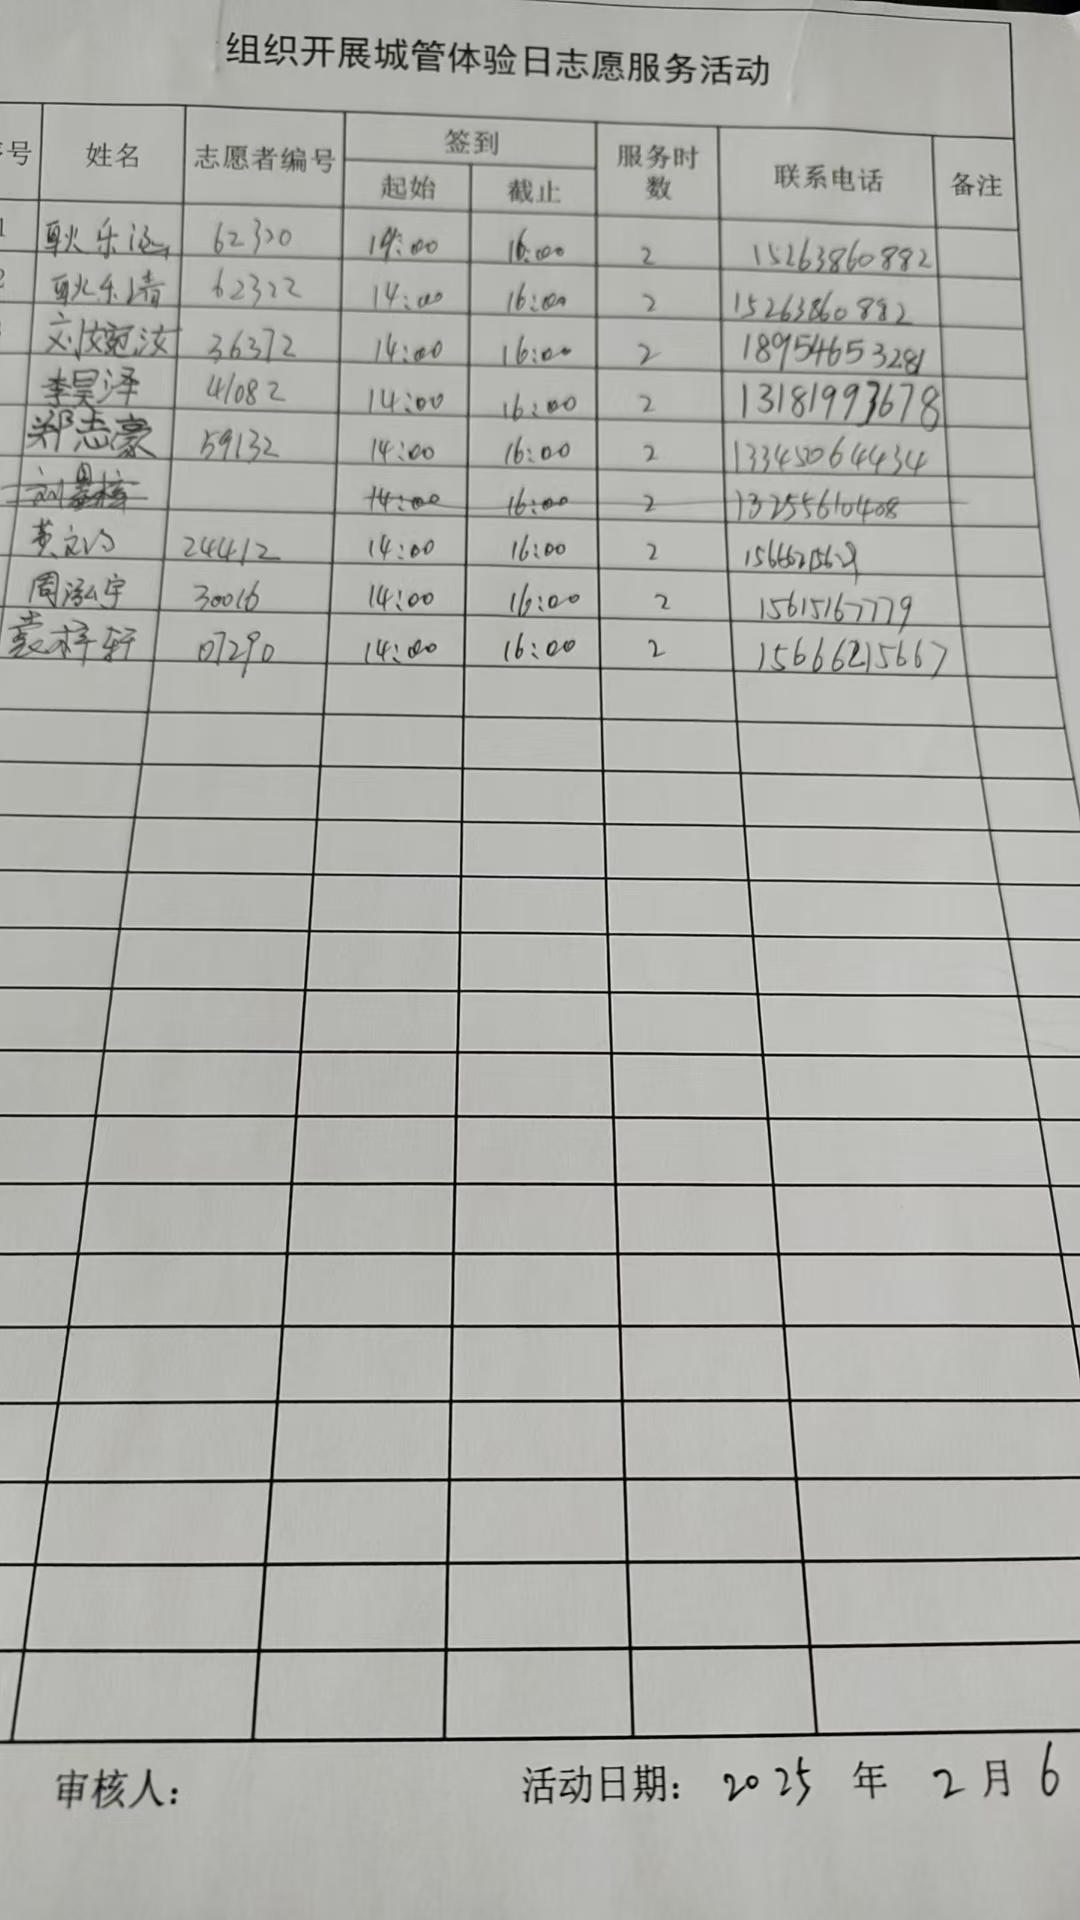 组织开展城管体验日志愿服务活动
号 姓名 志愿者编号 签到 服务时数 联系电话 备注
起始 截止
1 耿乐 62320 14:00 16:00 2 15263860882
2 耿乐清 62322 14:00 16:00 2 15263860882
刘宛汝 36372 14:00 16:00 2 18954653281
李昊泽 41082 14:00 16:00 2 13181993678
郑志豪 59132 14:00 16:00 2 13345064434
刘 14:00 16:00 2 13255610408
黄文 24412 14:00 16:00 2
周泓宇 30016 14:00 16:00 2 15615167779
袁梓轩 07290 14:00 16:00 2 15666215667
审核人： 活动日期： 2025 年 2 月 6